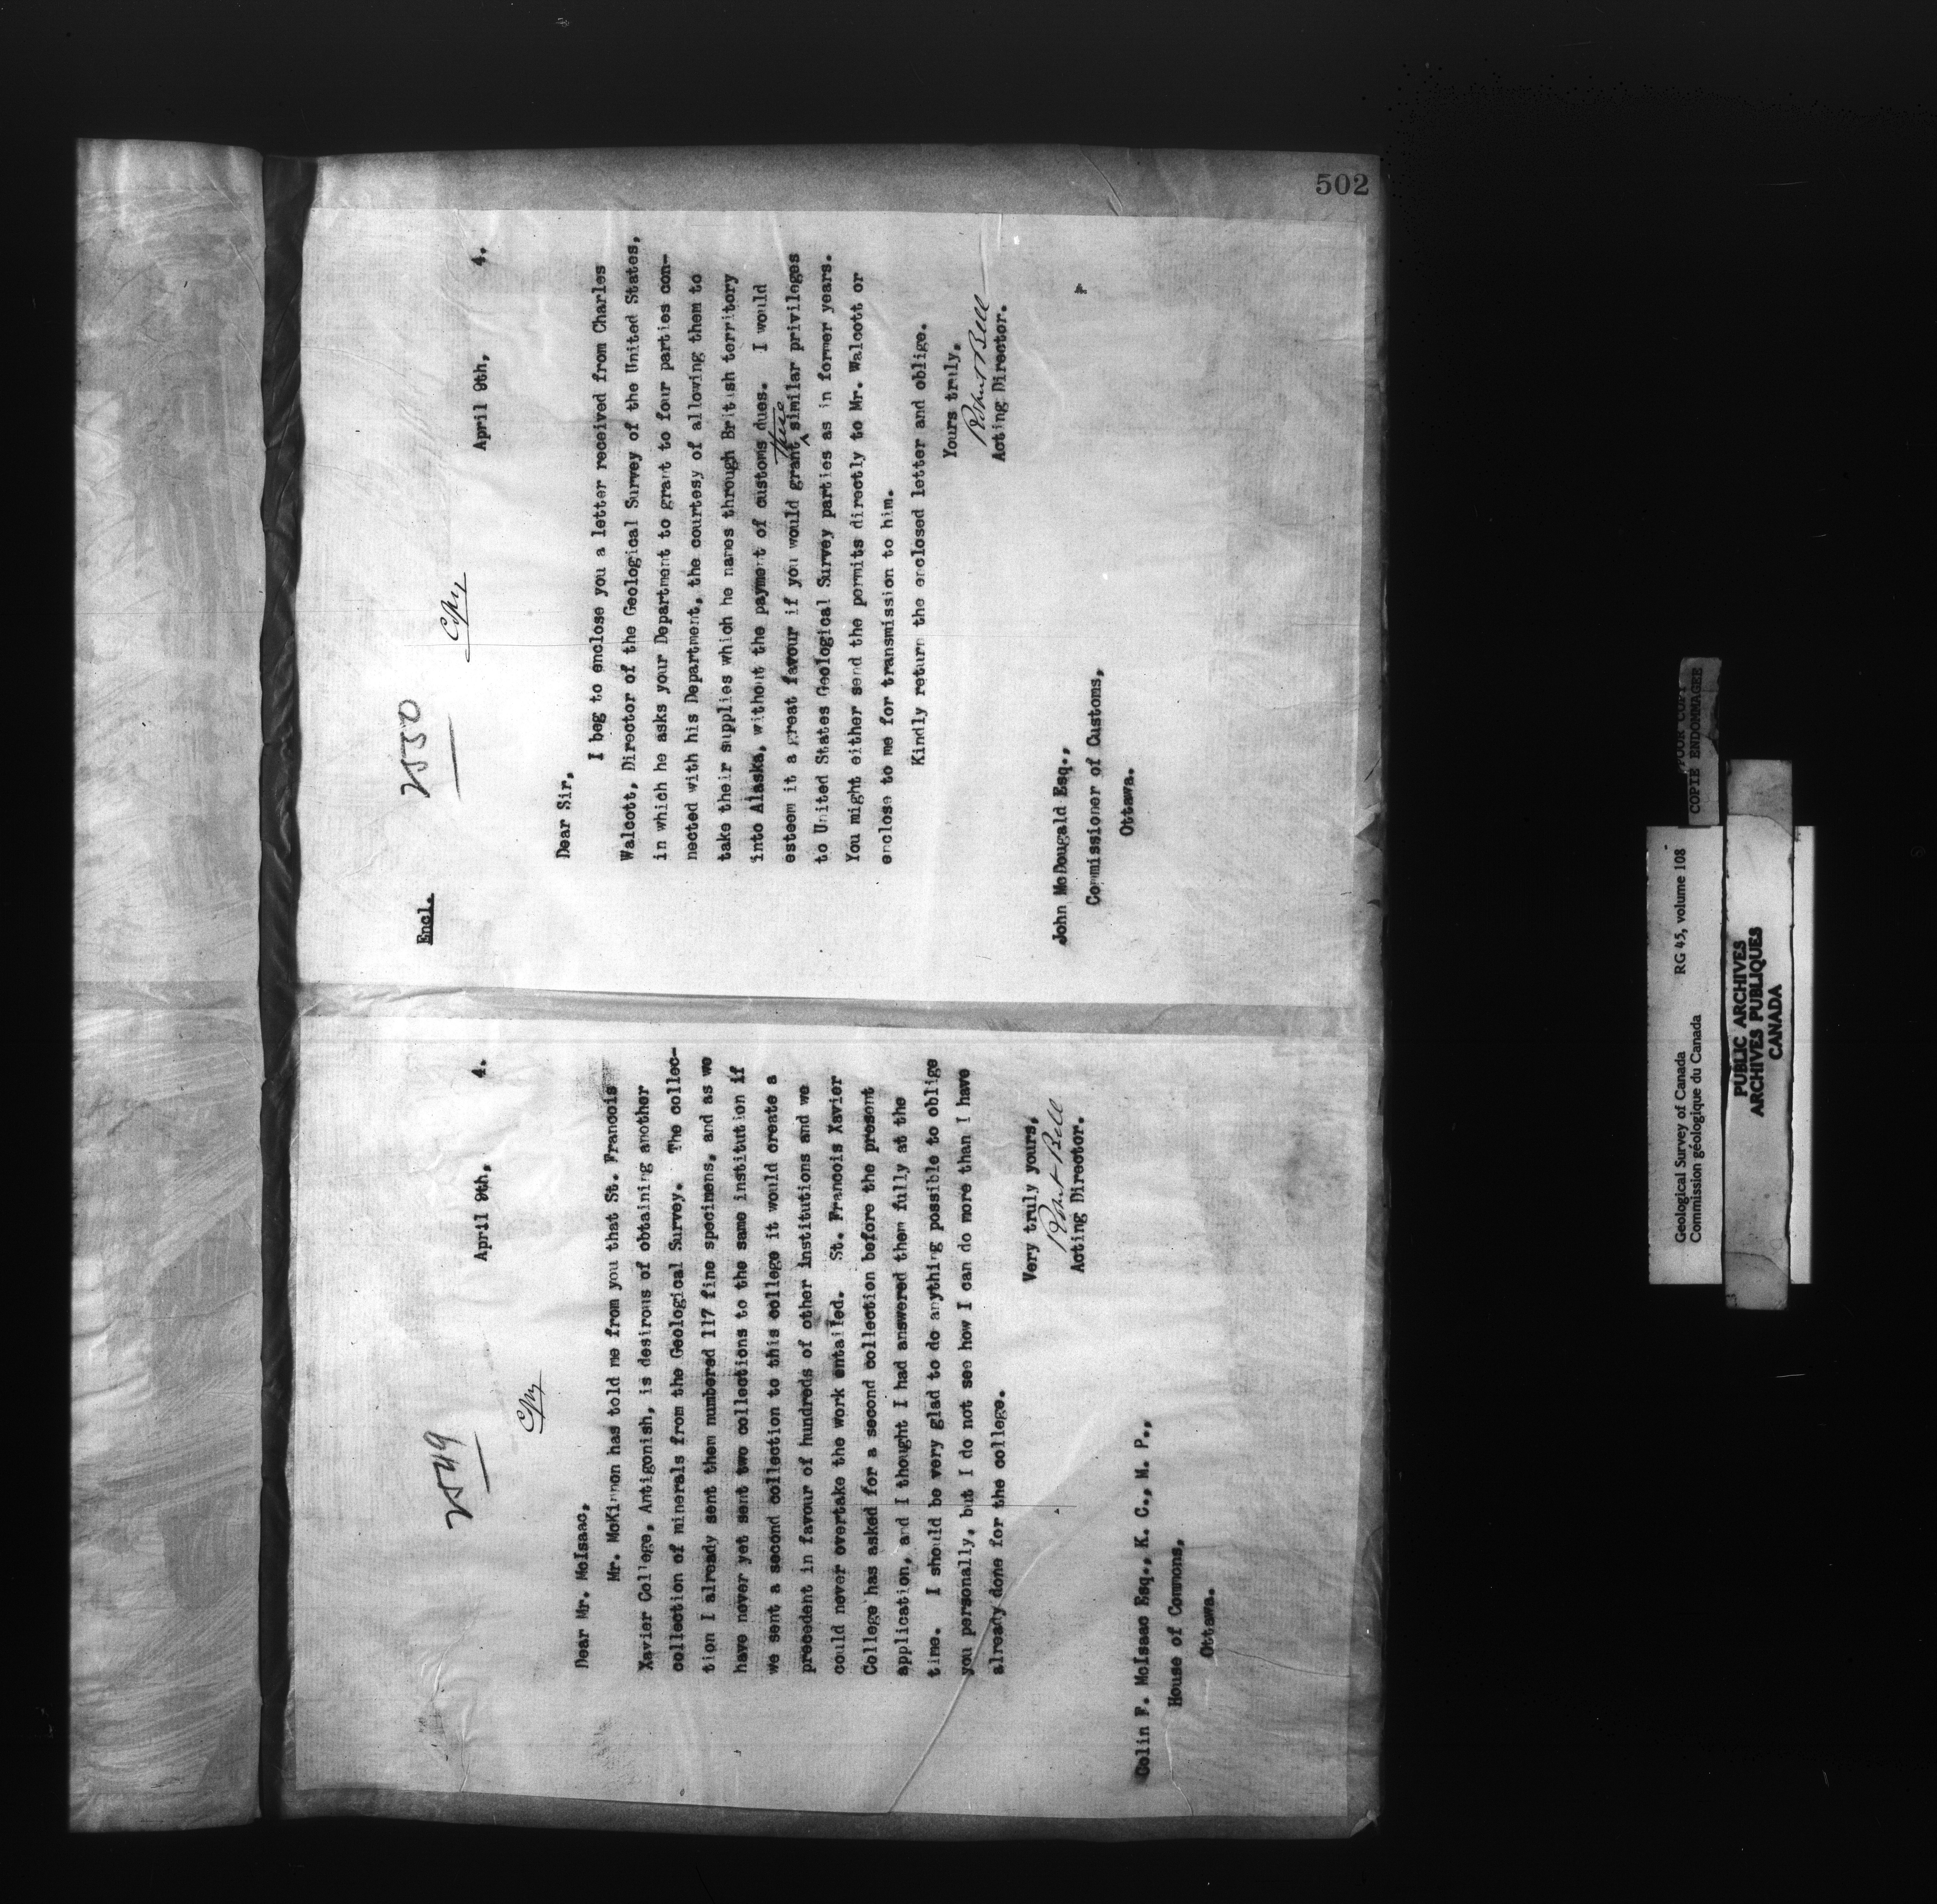 502
2549
Copy
April 9th, 4.
Dear Mr. McIsaac,
Mr. McKinnon has told me from you that St. Francois
Xavier College, Antigonish, is desirous of obtaining another
collection of minerals from the Geological Survey. The collec-
tion I already sent them numbered 117 fine specimens, and as we
have never yet sent two collections to the same institution if
we sent a second collection to this college it would create a
precedent in favour of hundreds of other institutions and we
could never overtake the work entailed. St. Francois Xavier
College has asked for a second collection before the present
application, and I thought I had answered them fully at the
time. I should be very glad to do anything possible to oblige
you personally, but I do not see how I can do more than I have
already done for the college.
Very truly yours,
Robert Bell
Acting Director.
Colin F. McIsaac Esq., K. C., M. P.,
House of Commons,
Ottawa.
Encl.
2550
Copy
April 9th, 4.
Dear Sir,
I beg to enclose you a letter received from Charles
Walcott, Director of the Geological Survey of the United States,
in which he asks your Department to grant to four parties con-
nected with his Department, the courtesy of allowing them to
take their supplies which he names through British territory
into Alaska, without the payment of customs dues. I would
esteem it a great favour if you would grant this similar privileges
to United States Geological Survey parties as in former years.
You might either send the permits directly to Mr. Walcott or
enclose to me for transmission to him.
Kindly return the enclosed letter and oblige.
Yours truly,
Robert Bell
Acting Director.
John McDougald Esq.,
Commissioner of Customs,
Ottawa.
Geological Survey of Canada RG 45, volume 108
Commission géologique du Canada
POOR COPY
COPIE ENDOMMAGEE
PUBLIC ARCHIVES
ARCHIVES PUBLIQUES
CANADA